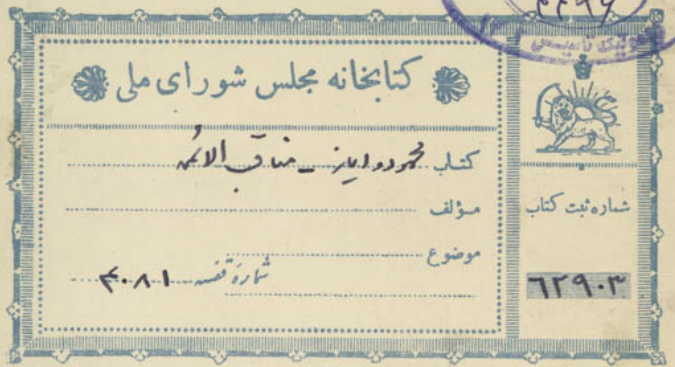 کتابخانه مجلس شورای ملی
کتاب محمود و ایاز - مناقب الائمه
مؤلف
موضوع
شماره قفسه ۴۰۸۱
شماره ثبت کتاب
۶۲۹۰۳